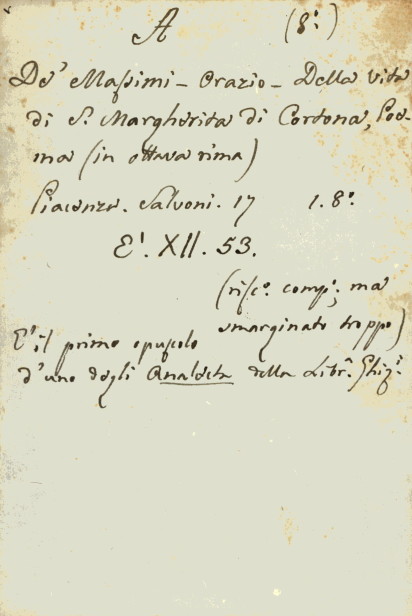 A (8.°)
De' Massimi - Orazio - Della vita
di S. Margherita di Cortona, Poe-
ma (in ottava rima)
Piacenza. Salvoni. 17 1. 8.°
E'. XII. 53.
(risc.° comp.°; ma
smarginato troppo)
E' il primo opuscolo
d'uno degli Analecta della Libr.ª Ghig.ª